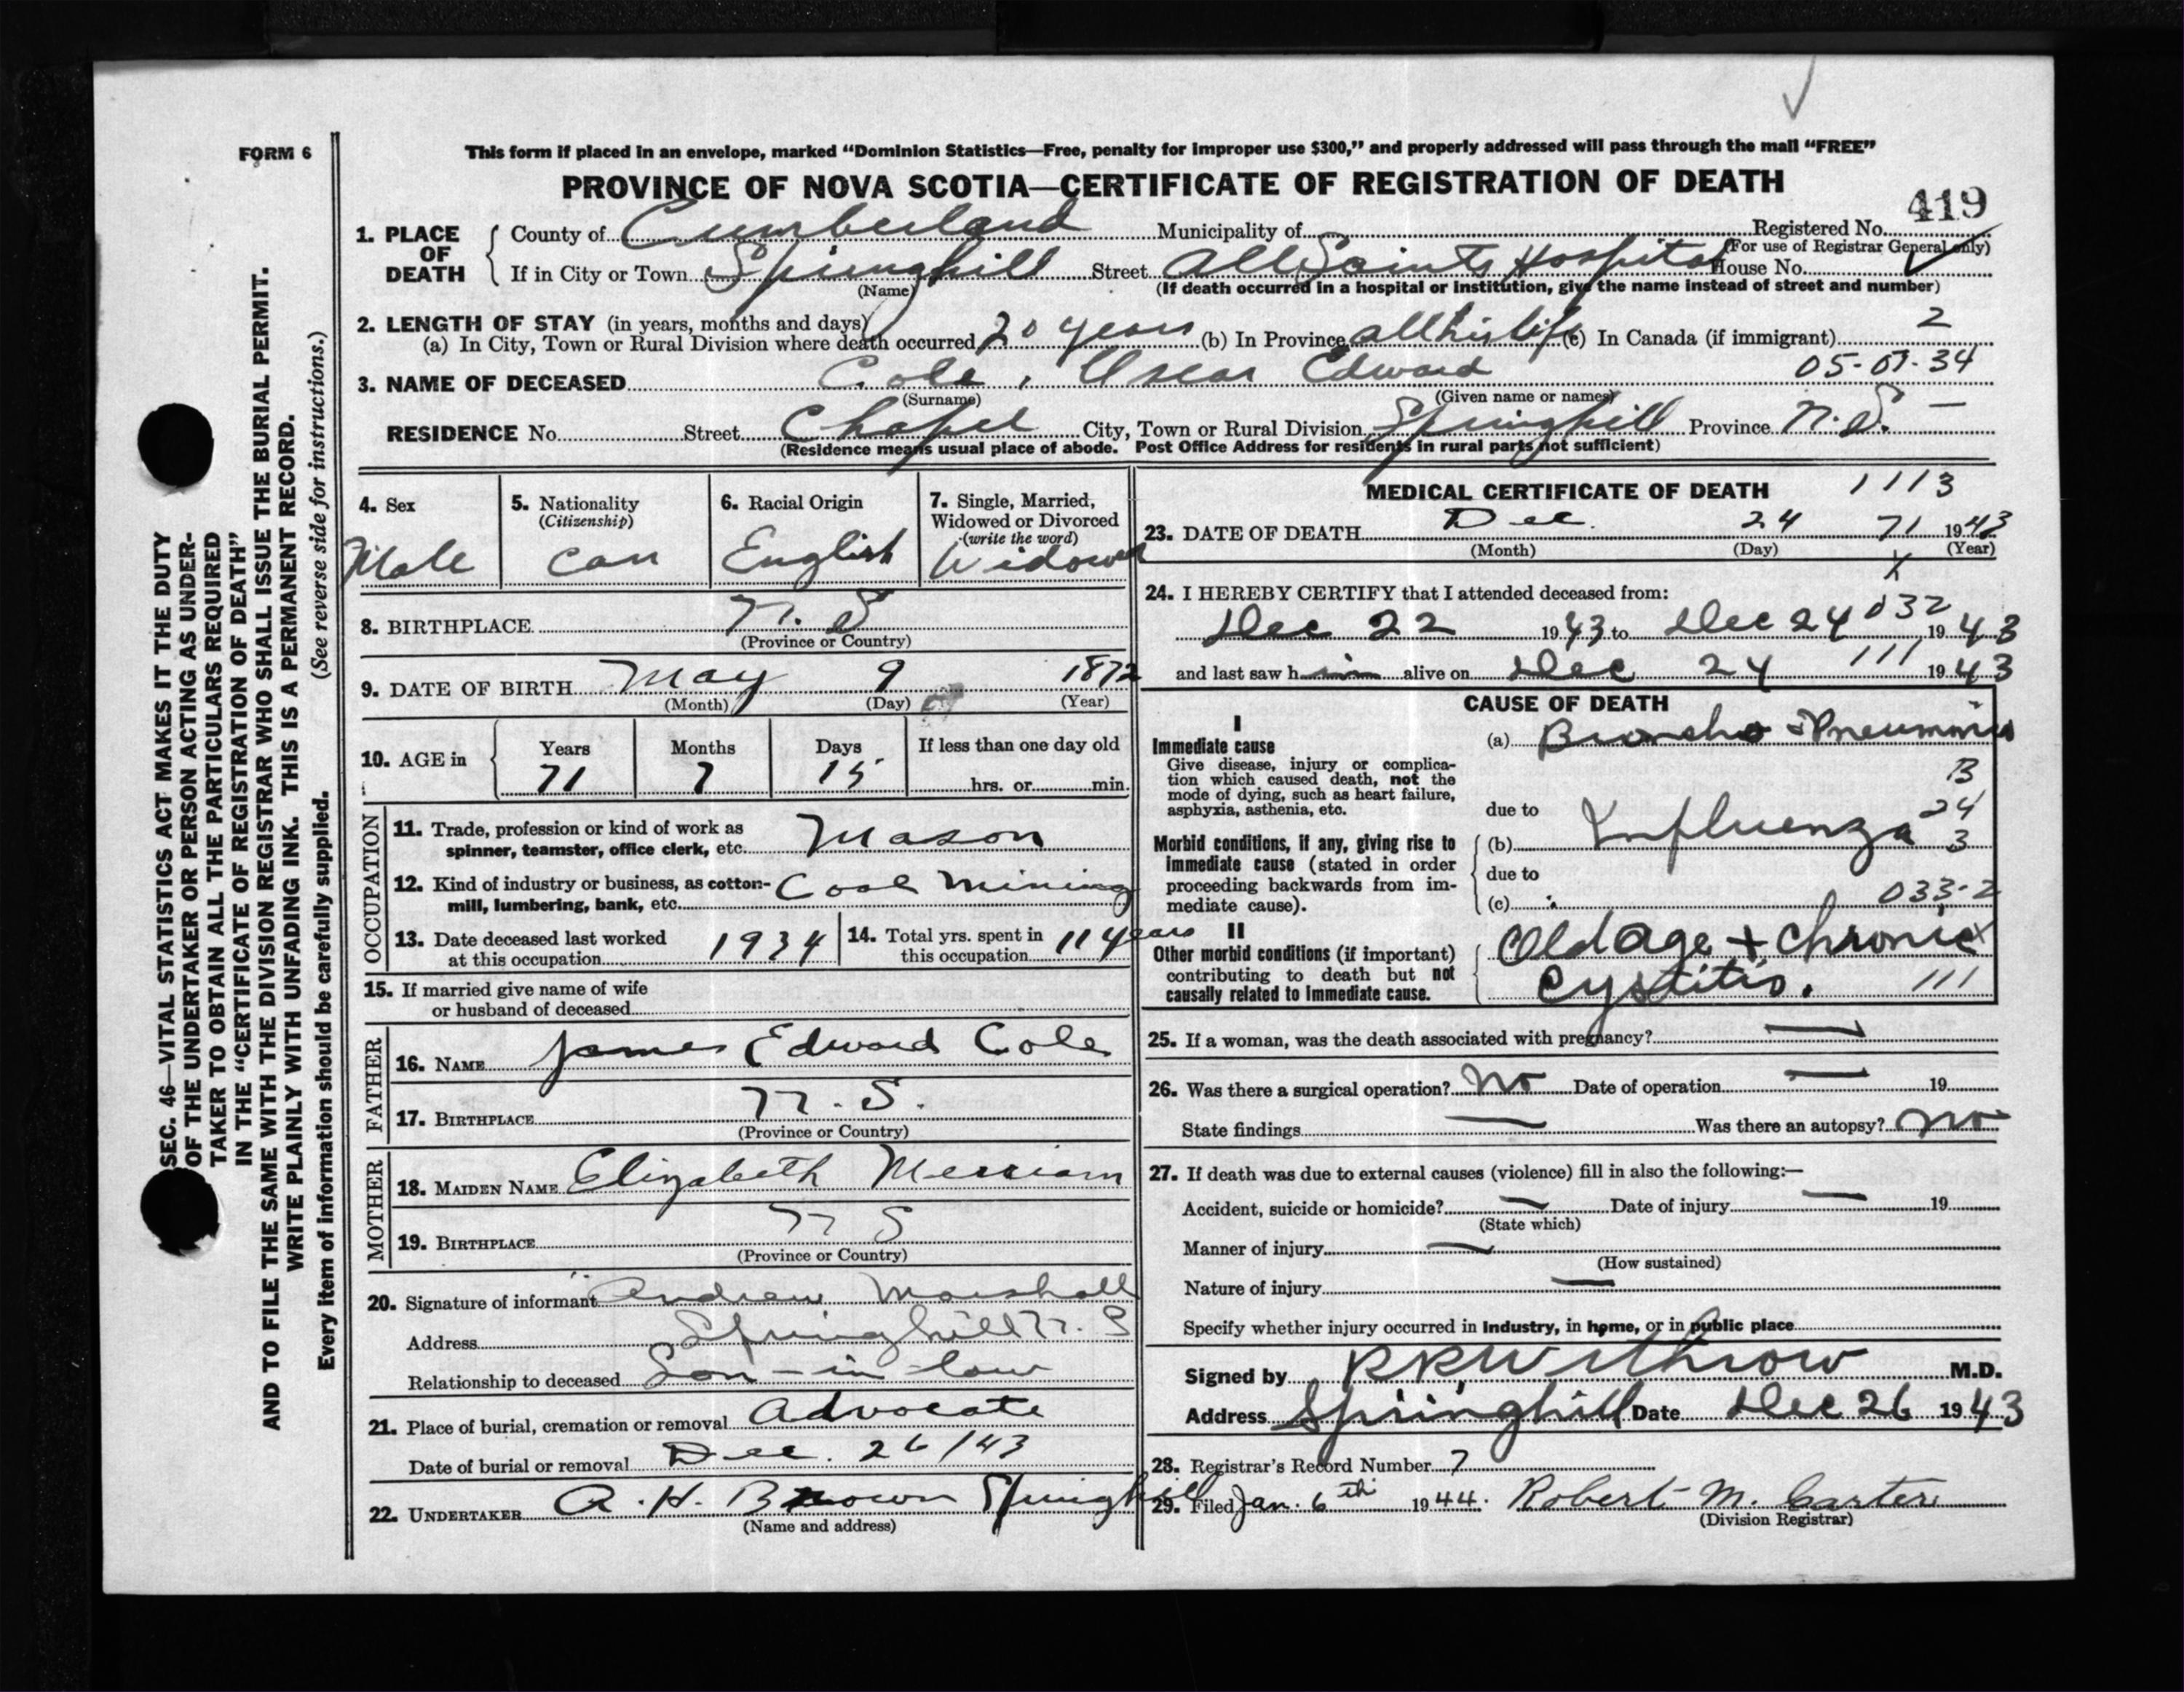 FORM 6
This form if placed in an envelope, marked “Dominion Statistics—Free, penalty for improper use $300,” and properly addressed will pass through the mail “FREE”
PROVINCE OF NOVA SCOTIA—CERTIFICATE OF REGISTRATION OF DEATH
419
1. PLACE OF DEATH County of Cumberland Municipality of Registered No.
(For use of Registrar General only)
If in City or Town Springhill Street All Saints Hospital House No.
(Name) (If death occurred in a hospital or institution, give the name instead of street and number)
2. LENGTH OF STAY (in years, months and days)
(a) In City, Town or Rural Division where death occurred 20 years (b) In Province all his life (c) In Canada (if immigrant) 2
3. NAME OF DECEASED Cole, Oscar Edward 05-07-34
(Surname) (Given name or names)
RESIDENCE No. Street Chapel City, Town or Rural Division Springhill Province N.S. —
(Residence means usual place of abode. Post Office Address for residents in rural parts not sufficient)
4. Sex
Male
5. Nationality
(Citizenship)
Can
6. Racial Origin
English
7. Single, Married,
Widowed or Divorced
(write the word)
Widower
8. BIRTHPLACE N. S
(Province or Country)
9. DATE OF BIRTH May 9 1872
(Month) (Day) (Year)
10. AGE in Years Months Days If less than one day old
71 7 15 hrs. or min.
OCCUPATION
11. Trade, profession or kind of work as
spinner, teamster, office clerk, etc. Mason
12. Kind of industry or business, as cotton-
mill, lumbering, bank, etc. Coal Mining
13. Date deceased last worked
at this occupation 1934
14. Total yrs. spent in
this occupation 11 years
15. If married give name of wife
or husband of deceased
FATHER
16. NAME James Edward Cole
17. BIRTHPLACE N.S.
(Province or Country)
MOTHER
18. MAIDEN NAME Elizabeth Merriam
19. BIRTHPLACE N S
(Province or Country)
20. Signature of informant Andrew Marshall
Address Springhill N. S
Relationship to deceased Son-in-law
21. Place of burial, cremation or removal Advocate
Date of burial or removal Dec. 26/43
22. UNDERTAKER A. H. Brown Springhill
(Name and address)
MEDICAL CERTIFICATE OF DEATH 1113
23. DATE OF DEATH Dec. 24 71 1943
(Month) (Day) (Year)
X
24. I HEREBY CERTIFY that I attended deceased from:
032
Dec 22 1943 to Dec 24 1943
and last saw him alive on Dec 24 111 1943
CAUSE OF DEATH
I
Immediate cause
Give disease, injury or complica-
tion which caused death, not the
mode of dying, such as heart failure,
asphyxia, asthenia, etc.
(a) Broncho Pneumonia
B
due to 24
Morbid conditions, if any, giving rise to
immediate cause (stated in order
proceeding backwards from im-
mediate cause).
(b) Influenza 3
due to
(c) 033-2
II
Other morbid conditions (if important)
contributing to death but not
causally related to immediate cause.
Old age + Chronic x
Cystitis. 111
25. If a woman, was the death associated with pregnancy? —
26. Was there a surgical operation? No Date of operation — 19
State findings — Was there an autopsy? No
27. If death was due to external causes (violence) fill in also the following:—
Accident, suicide or homicide? — Date of injury — 19
(State which)
Manner of injury —
(How sustained)
Nature of injury —
Specify whether injury occurred in industry, in home, or in public place
Signed by RRWithrow M.D.
Address Springhill Date Dec 26 1943
28. Registrar's Record Number 7
29. Filed Jan. 6th 1944. Robert M. Carter
(Division Registrar)
SEC. 46—VITAL STATISTICS ACT MAKES IT THE DUTY
OF THE UNDERTAKER OR PERSON ACTING AS UNDER-
TAKER TO OBTAIN ALL THE PARTICULARS REQUIRED
IN THE “CERTIFICATE OF REGISTRATION OF DEATH”
AND TO FILE THE SAME WITH THE DIVISION REGISTRAR WHO SHALL ISSUE THE BURIAL PERMIT.
WRITE PLAINLY WITH UNFADING INK. THIS IS A PERMANENT RECORD.
Every item of information should be carefully supplied. (See reverse side for instructions.)